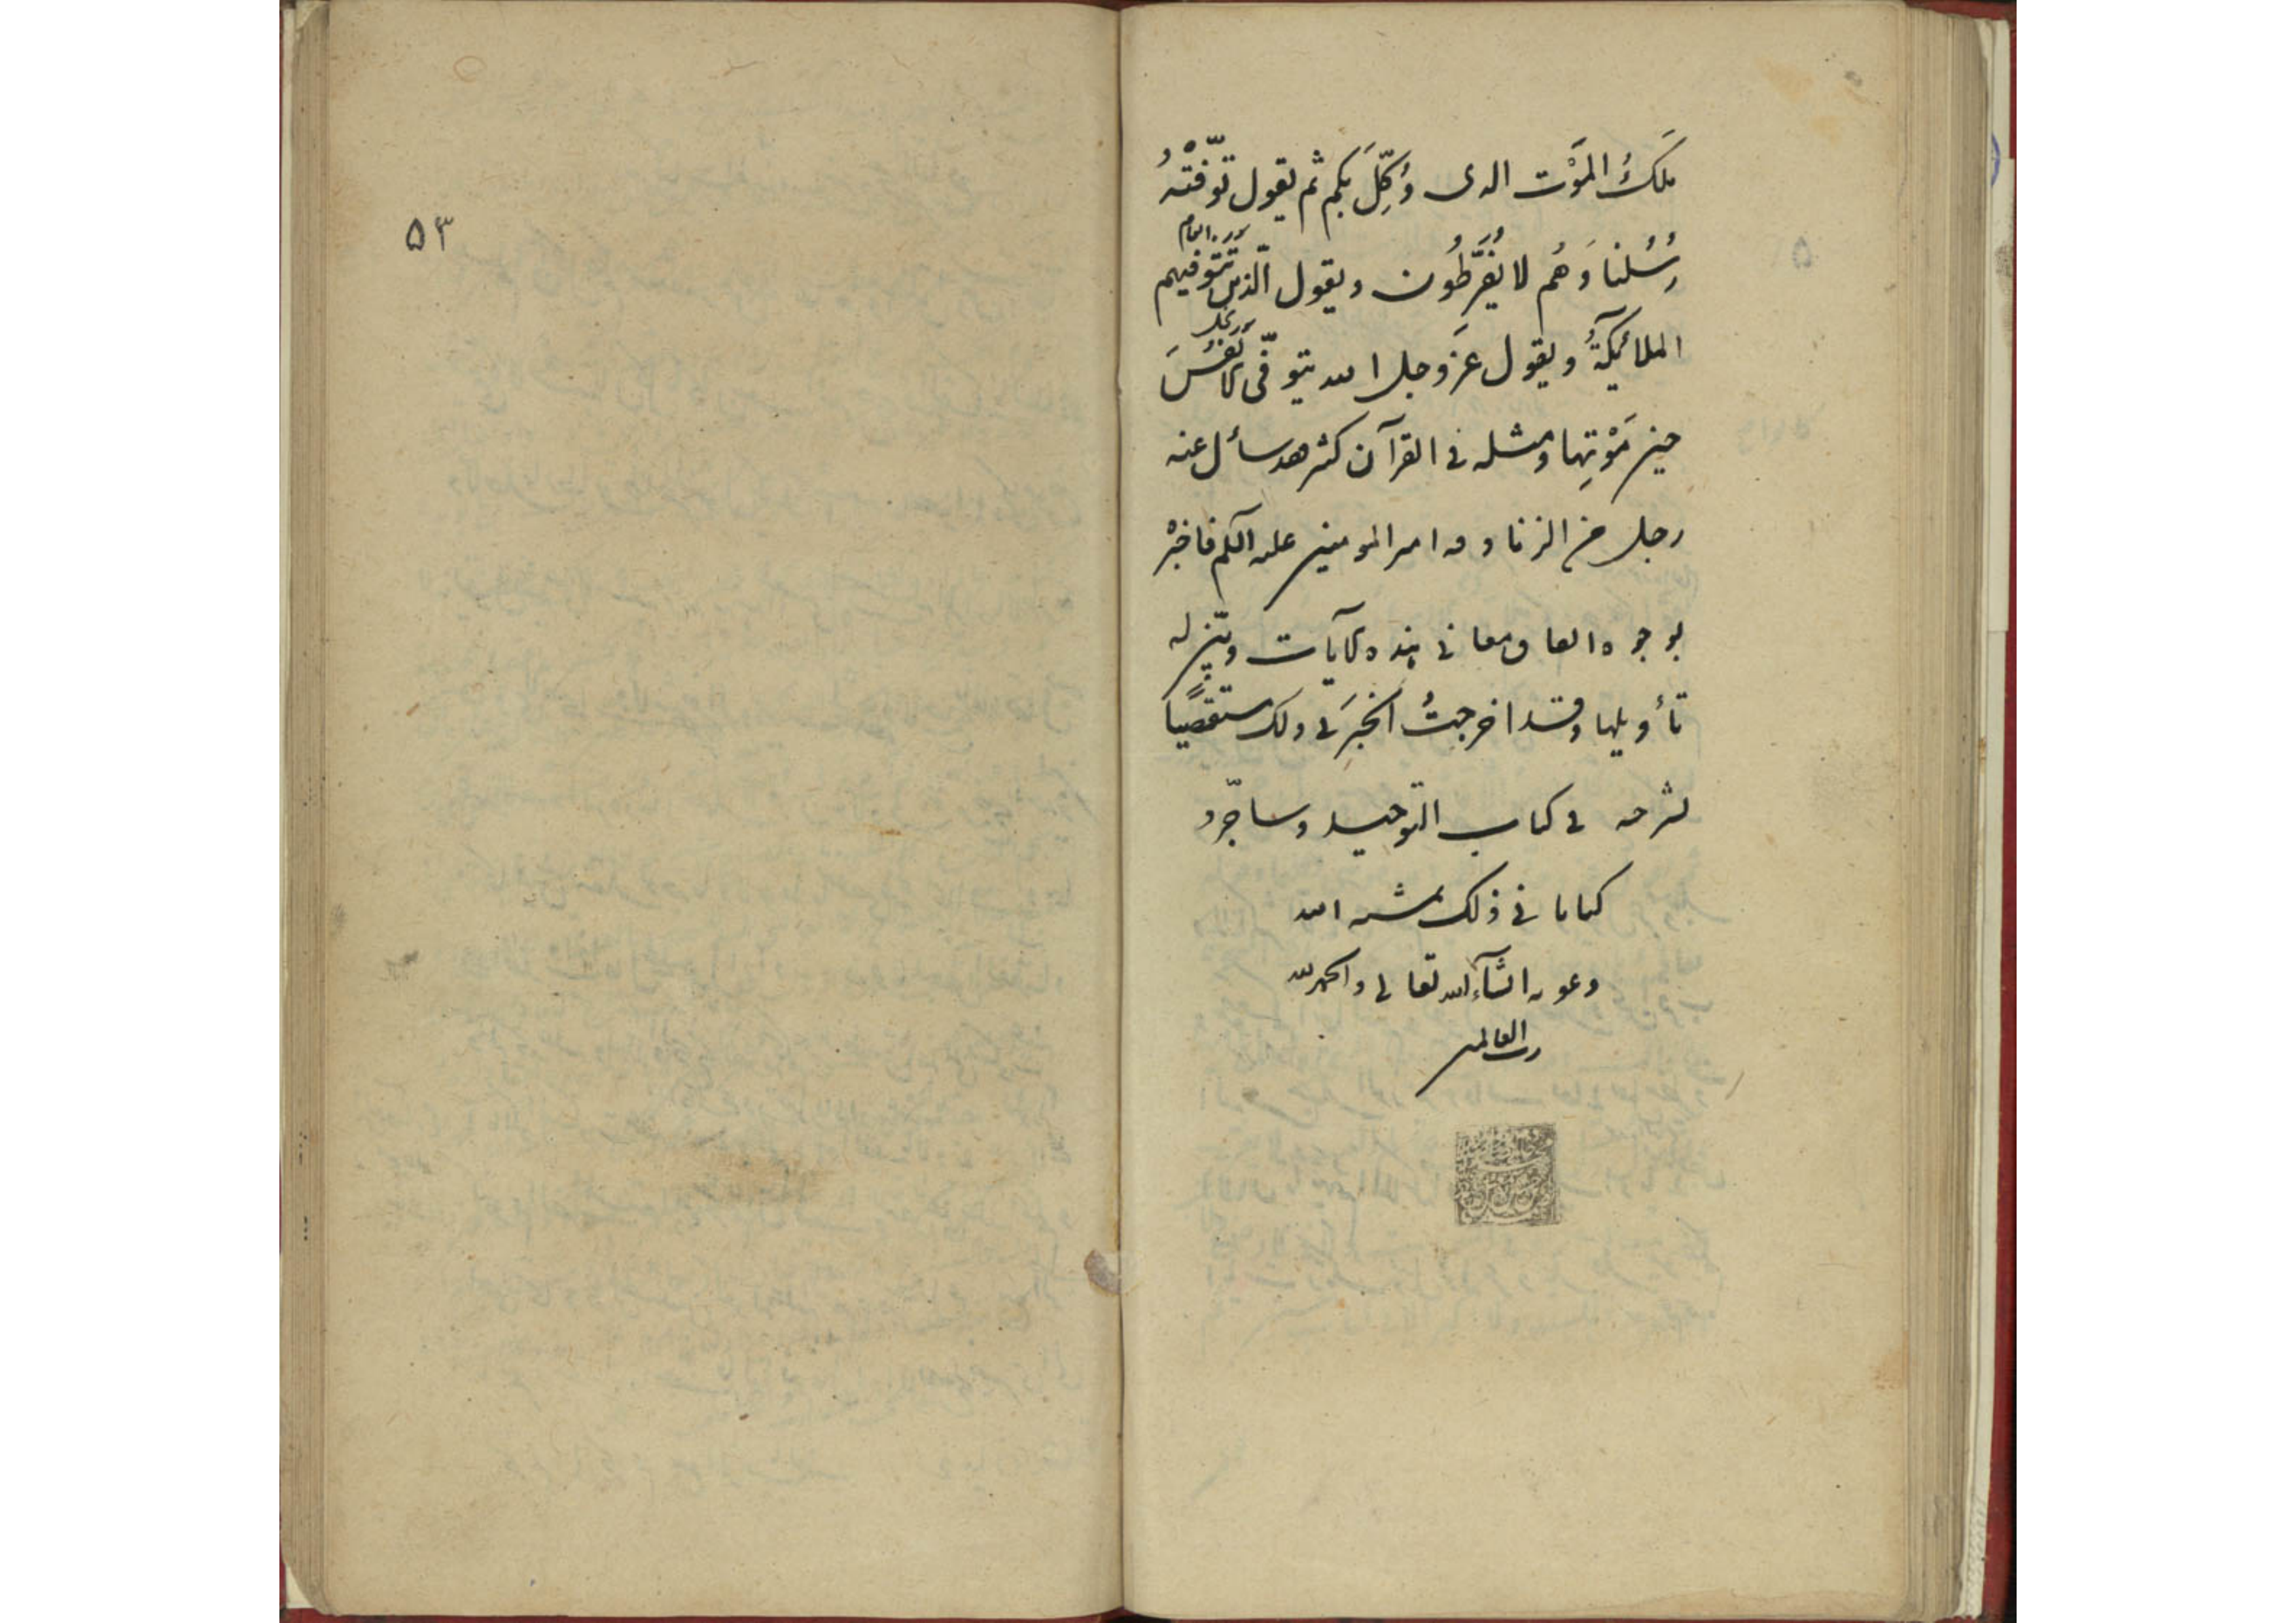 مَلَكُ المَوْت الدى وُكِّلَ بكم ثم يقول توّفتْهُ
رُسُلنا وَهُم لا يُفَرِّطُون ويقول الّذين تَتَوفيهم
الملائيكةُ ويقول عَزّ وجل الله يتوفّى الانفُسَ
حين مَوْتِها ومثله فى القرآن كثر وقد سأل عنه
رجل من الزنادقه امىر المومنين علىه السلم فاخبرْ
بوجوه اىفاق معانى هذه الآيات وبيّن له
تأويلها وقد اخرجتُ الخبَرَ فى ذلك مستقصًيا
بشرحه فى كتاب التوحيد وساجرّد
كتابا فى ذلك بمشىه الله
وعونه انشآء الله تعالى والحمد لله
رب العالمين
۵۳